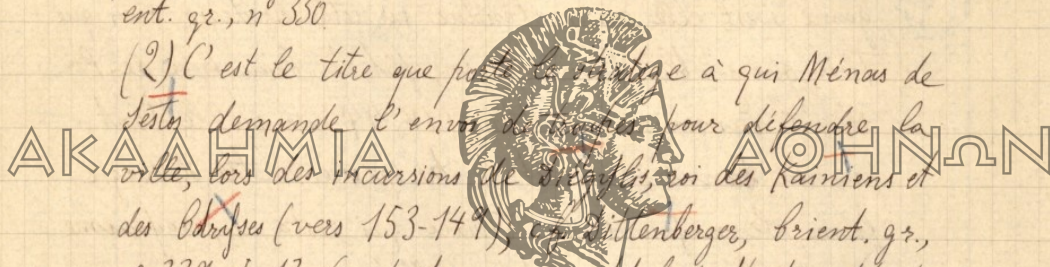 ent. gr., nº 330
(2) C'est le titre que porte le stratège à qui Ménas de
Sestos demande l'envoi de troupes pour défendre la
ΑΚΑΔΗΜΙΑ ΑΘΗΝΩΝ
ville, lors des incursions de Diégylis, roi des Kainiens et
des Odryses (vers 153-149), cf. Dittenberger, Orient. gr.,